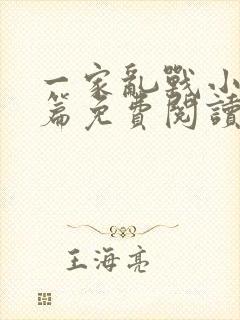 一家亂戰小
篇免費閱讀
王海亮